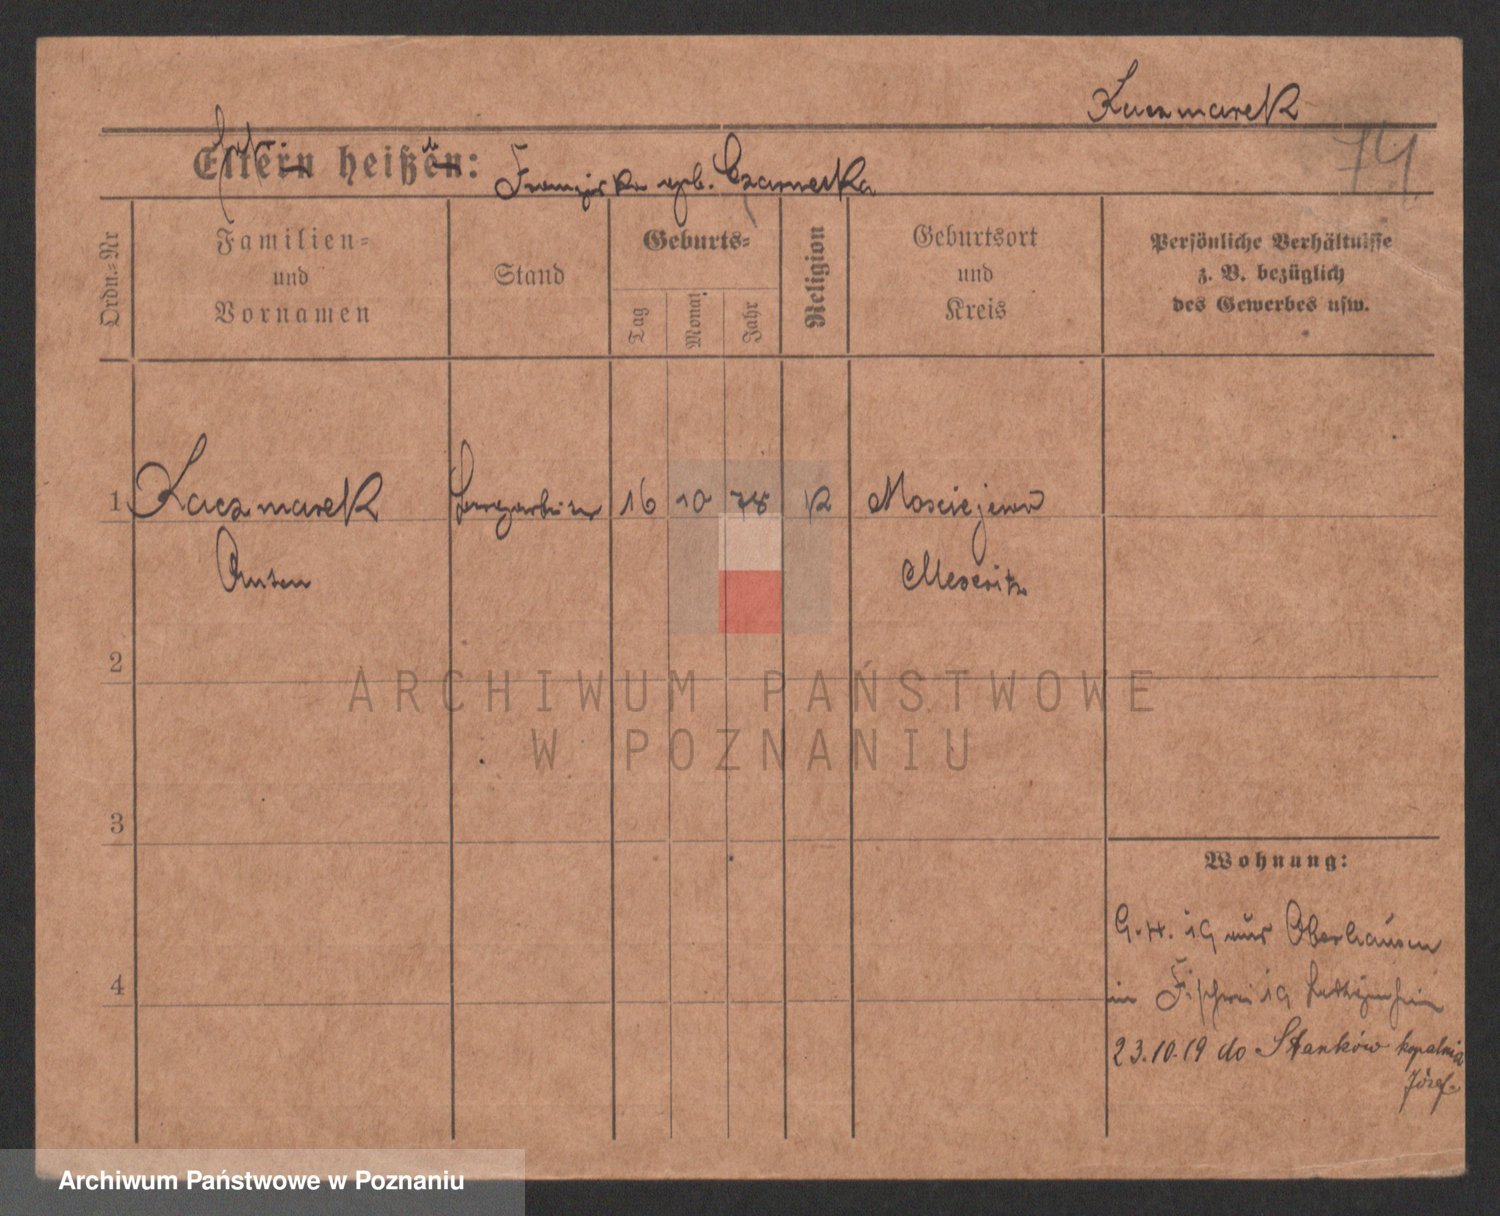 Kaczmarek
74
Eltern heißen: Franziska geb. Czarnecka
Ordn.=Nr
Familien=
und
Vornamen
Stand
Geburts=
Tag
Monat
Jahr
Religion
Geburtsort
und
Kreis
Persönliche Verhältnisse
z. B. bezüglich
des Gewerbes usw.
1 Kaczmarek Bergarbeiter 16 10 78 K
Meseritz
2
ARCHIWUM PAŃSTWOWE
W POZNANIU
3
Wohnung:
19 aus Oberhausen
4
in 19
23.10.19 do Stanków kopalnia
Józef
Archiwum Państwowe w Poznaniu